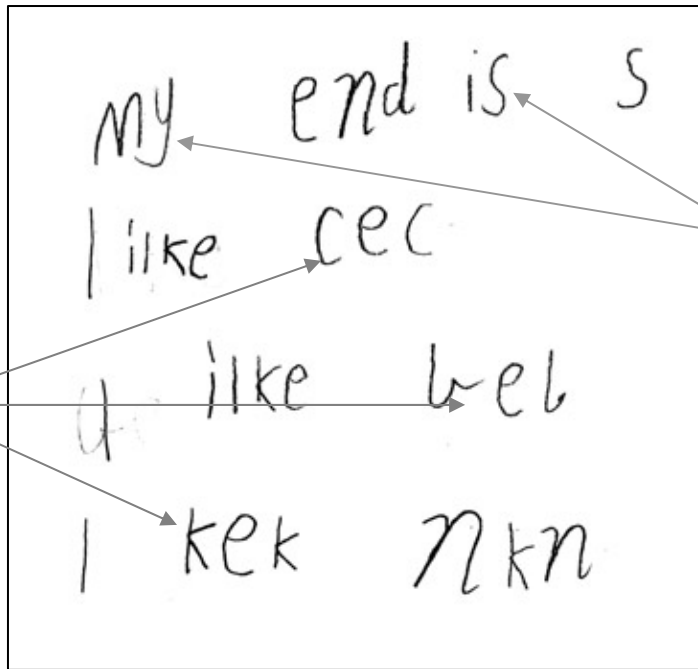 my end is s
I ilke cec
I ilke beb
I kek nkn